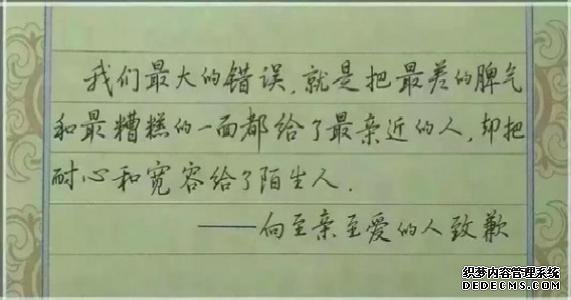 我们最大的错误,就是把最差的脾气
和最糟糕的一面都给了最亲近的人,却把
耐心和宽容给了陌生人.
——向至亲至爱的人致歉
织梦内容管理系统
DEDECMS.COM